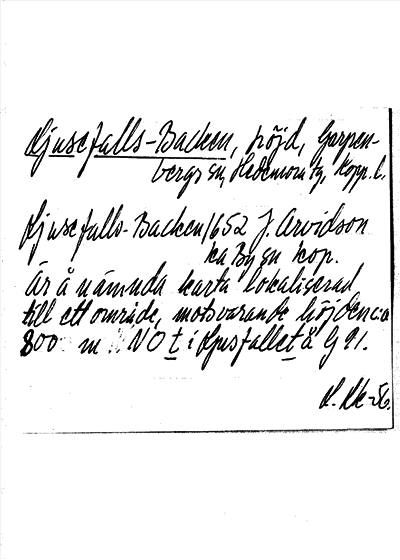 Ljusefalls-Backen, höjd, Garpen-
bergs sn, Hedemora tg, Kopp. l.
Ljusefalls-Backen 1652 J. Arvidson
ka By sn kop.
Är å nämnda karta lokaliserad
till ett område, motsvarande höjden ca
800 m NO t i Ljusfallet å G 91.